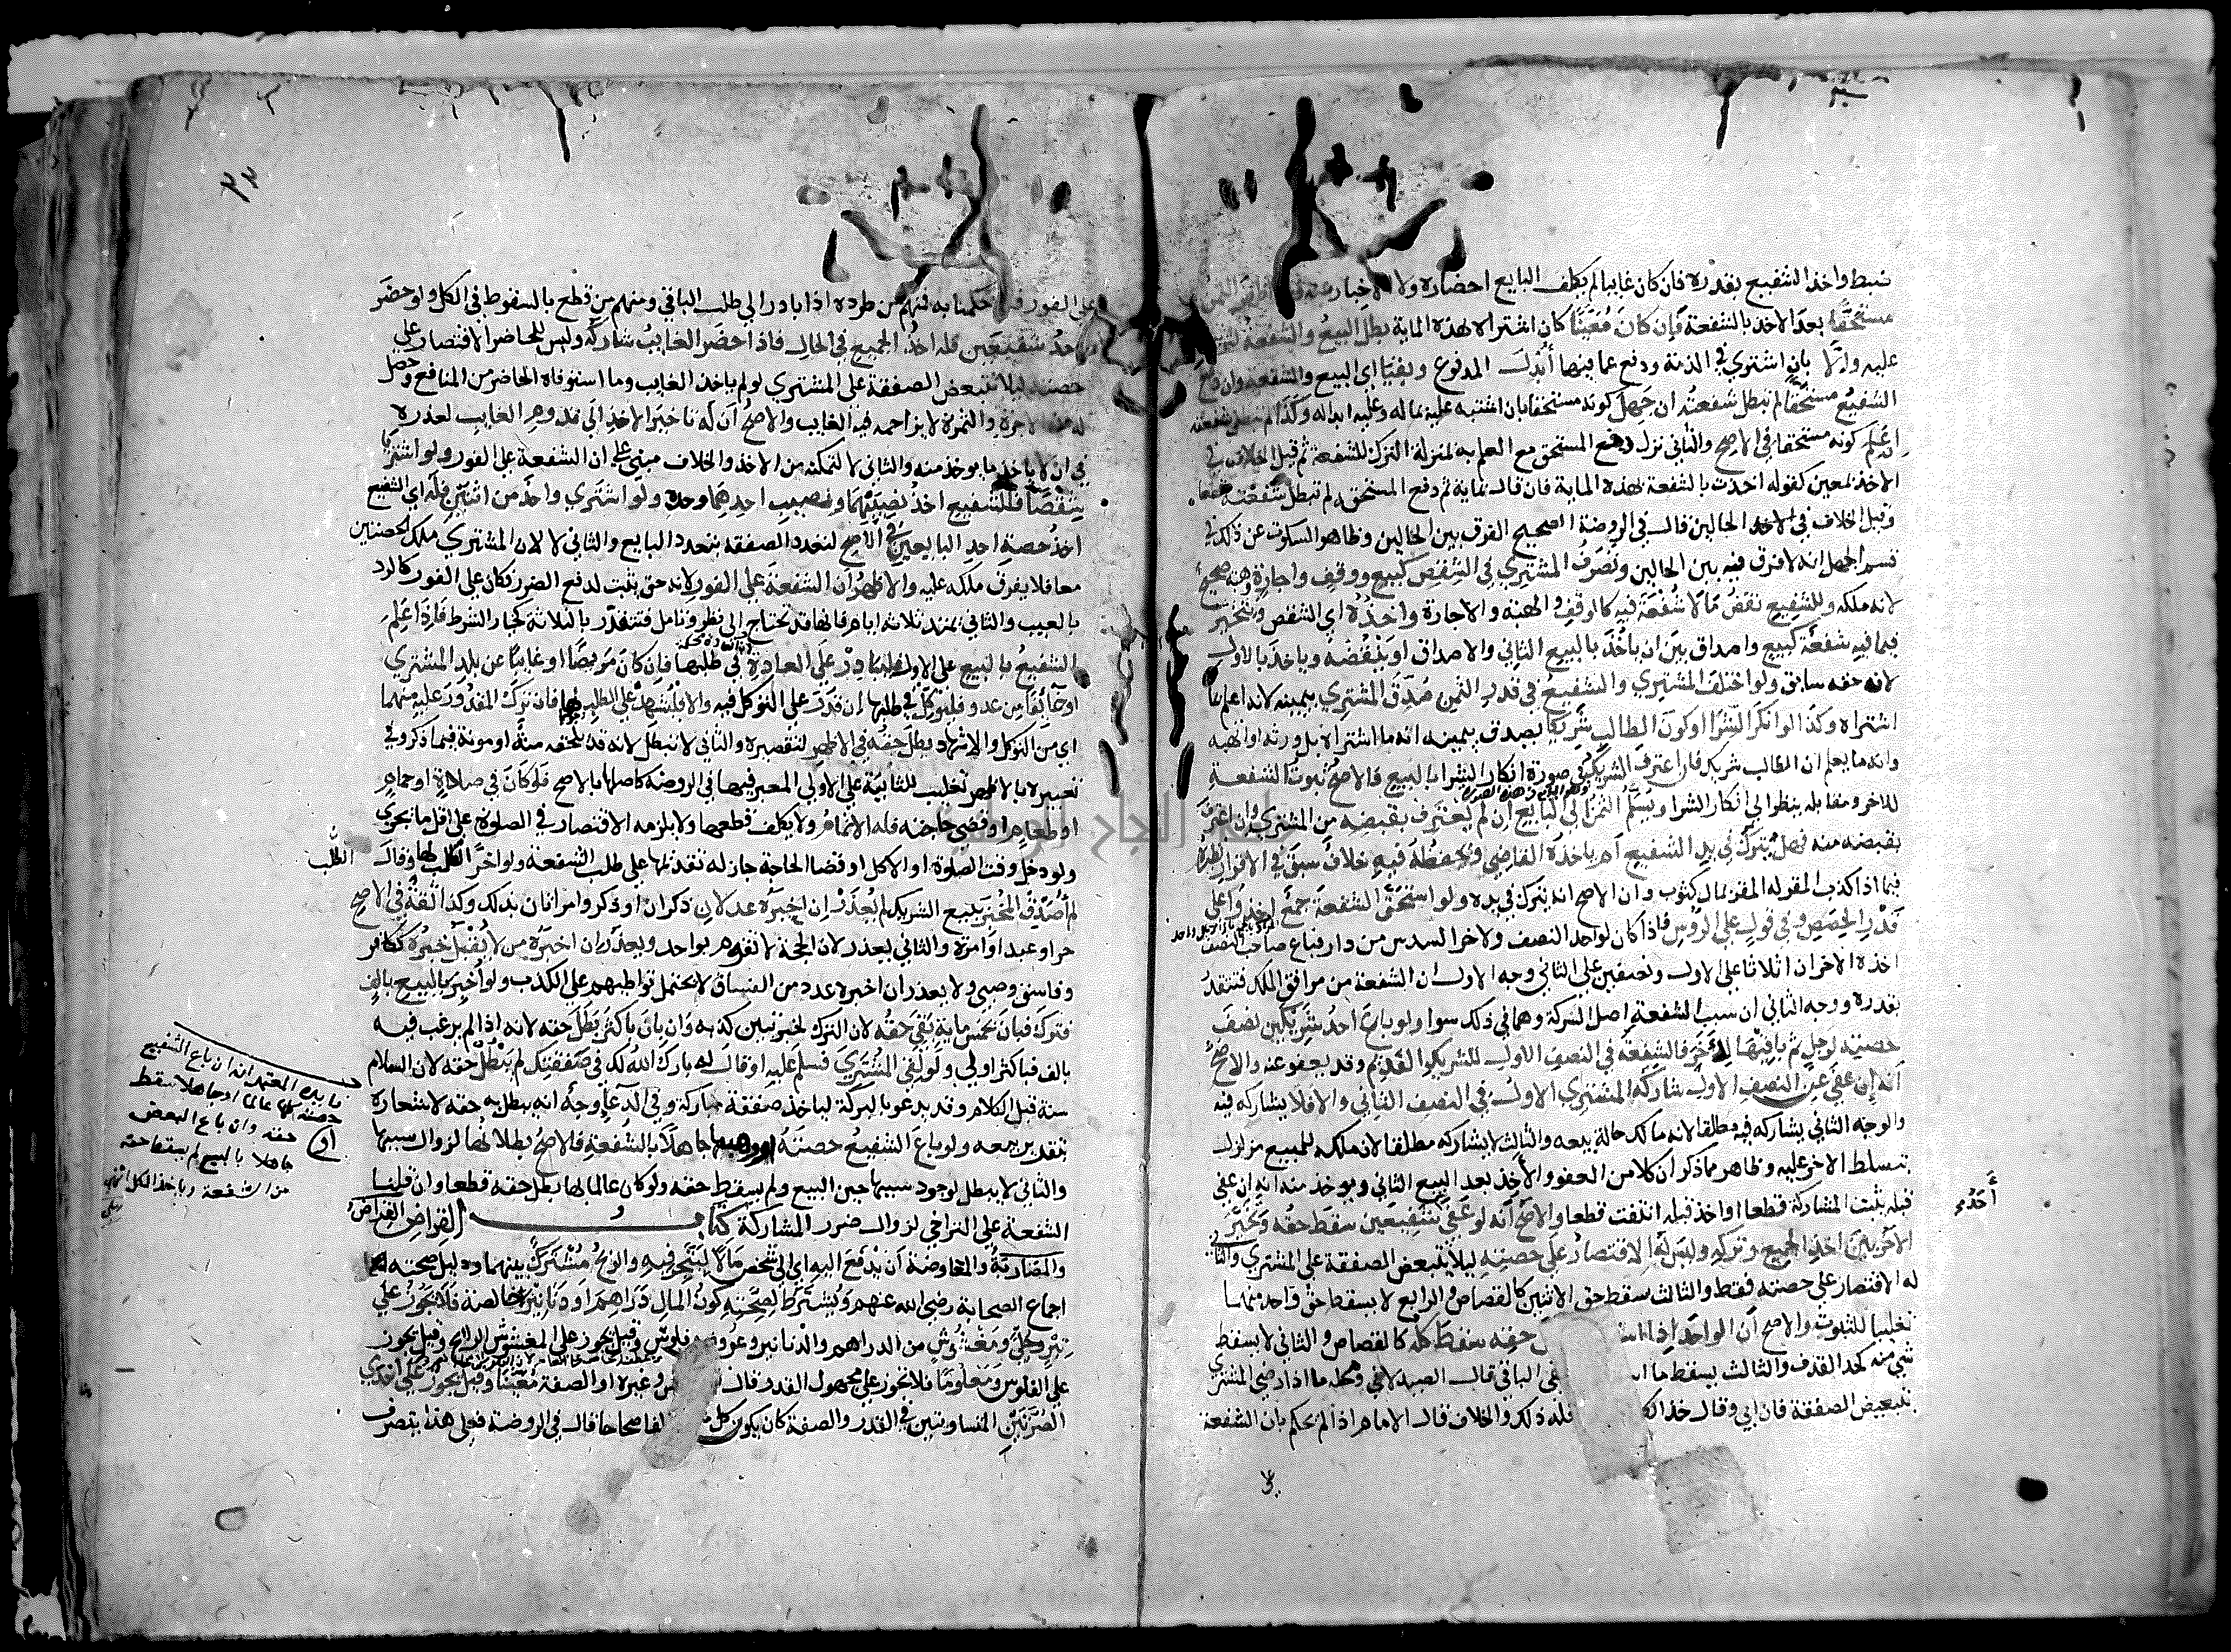 ضبط واخذ الشفيع بقدره فان كان غايبا لم يكلف البايع احضاره ولا الاخبار عنه
مستحقا بعد الاخذ بالشفعة فإن كان مُعَيّنًا كان اشترا لا بهذه الماية بطل البيعُ والشفعة
عليه وإلّا بان اشتري في الذمة ودفع عما فيها أُبْدِلَ المدفوع وبقيَا اي البيع والشفعة وان دفع
الشفيعُ مستحقّا لم تبطل شفعته ان جَهِلَ كونه مستحقا بان اشتبه عليه بماله وعليه ابداله وكذا ان
علم كونه مستحقا في الاصح والثاني نزل دفع المستحق مع العلم به منزلة الترك للشفعة ثم قيل الخلاف في
الاخذ بمعين كقوله اخذت بالشفعة بهذه الماية فان قال بماية ثم دفع المستحق لم تبطل شفعته
وقيل الخلاف في الحالين قال في الروضة الصحيح الفرق بين الحالين وظاهر السكوت عن ذلك في
قسم الجهل انه لا فرق فيه بين الحالين وتصرف المشتري في الشقص كبيعٍ ووقفٍ واجارةٍ وهبه صحيح
لانه ملكه وللشفيع نقضُ مَا لا شُفْعَة فيه كالوقف والهبه والاجارة واخذُهُ اي الشقص ويتخير
فيما فيه شفعَة كبيع واصداق بين ان ياخُذَ بالبيع الثاني والاصداق او يَنْقُضه وياخذَ بالاول
لان حقه سابق ولو اختلف المشتري والشفيعُ في قدر الثمن صُدّق المشتري بيمينه لانه اعلم بما
اشتراه وكذا لو انكر الشرَا او كونَ الطالبِ شَرِيكًا يصدق بيمينه انه ما اشتراه بل ورثه او اتهبه
وانه ما يعلم ان الطالب شريك فان اعترف الشريك في صورة انكار الشرا بالبيع فالاصح ثبوت الشفعة
للاخر ومقابله ينظر الي انكار الشرا ويُسَلّمُ الثمَن الي البايع ان لم يعترف بقبضه من المشتري وان اعترف
بقبضه منه فهل يُتركُ في يد الشفيع أم ياخذه القاضي ويحفظه فيه خلاف سبق في الاقرار نظيره
فيما اذا كذب المقر له المقر بمال كثوب وان الاصح انه يترك في يده ولو استحقّ الشفعة جمعٌ اخذوا علي
قَدْرِ الحِصَصِ وفي قولٍ علي الروُس فاذا كان لواحد النصف ولاخر السدس من دار فباع صاحب النصف
اخذه الاخران اثلاثا علي الاول ونصفين علي الثاني وجه الاول ان الشفعة من مرافق الملك فتتقدر
بقدره ووجه الثاني ان سبب الشفعةِ اصل الشركة وهما في ذلك سوا ولو باعَ احدُ شريكين نصفَ
حصته لرجلٍ ثم باقِيَهَا لآخَرَ فالشفعة في النصف الاول للشريك القديم وقد يعفو عنه والاصح
أنه إن عفي عن النصف الاول شاركه المشتري الاول في النصف الثاني والا فلا يشاركه فيه
والوجه الثاني يشاركه فيه مطلقا لانه مالك حالة بيعه والثالث لا يشاركه مطلقا لان ملكه للمبيع متزلزل
بتسلط الاخر عليه وظاهر مما ذكر ان كلا من العفو والاخذ بعد البيع الثاني ويوخذ منه انه ان عفي
قبله ثبتت المشاركة قطعا او اخذ قبله انتفت قطعا والاصح أنه لو عفي أحَدُ شفيعين سقط حقه وتخير
الآخر بين اخذ الجميع وتركه وليس له الاقتصارُ علي حصته ليلا تتبعض الصفقة علي المشتري والثاني
له الاقتصار علي حصته فقط والثالث سقط حق الاثنين كالقصاص والرابع لا يسقط حق واحد منهما
تغليبا للثبوت والاصح أن الواحد إذا حقه سقطَ كله كالقصاص والثاني لا يسقط
شي منه كحد القذف والثالث يسقط ما الباقي قال الصيدلاني ومحله ما اذا رضي المشتري
بتبعيض الصفقة فان ابي وقال خذ الكل فله ذلك والخلاف قال الامام اذا لم نحكم بان الشفعة
أحَدُ
علي الفور فان حكمنا به فمنهم من طرده اذا بادر الي طلب الباقي ومنهم من قطع بالسقوط في الكل ولو حضر
احدُ شفيعَين فله اخذُ الجميع في الحال فاذا حضر الغايبُ شاركه وليس للحاضر الاقتصار علي
حصته ليلا تتبعض الصفقة علي المشتري لو لم ياخذ الغايب وما استوفاه الحاضر من المنافع وحصل
له من الاجرة والثمرة لا يزاحمه فيه الغايب والاصحُ أن لَه تاخيرَ الاخذ الي قدوم الغايب لعذره
في ان لا ياخذ ما يوخذ منه والثاني لا لتمكنه من الاخذ والخلاف مبني علي ان الشفعة علي الفور ولو اشتريا
شقْصًا فللشفيع اخذُ نصيبَيْهمَا ونصيبِ احدِهِمَا وحده ولو اشتري واحدٌ من اثنين فله اي الشفيع
اخذُ حصةِ احدِ البايعين في الاصح لتعدد الصفقه بتعدد البايع والثاني لا لان المشتري ملك الحصتين
معا فلا يفرق ملكه عليه والاظهر أن الشفعة علي الفور لانه حق يثبت لدفع الضرر فكان علي الفور كالرد
بالعيب والثاني يمتد ثلاثه ايام فانها قد تحتاج الي نظر وتامل فتتقدر بالثلاثة كخيار الشرط فاذا علِم
الشفيعُ بالبيع علي الاول فليبادِرْ علَي العادةِ في طلبها فان كان مَريضًا او غايبًا عن بلد المشتري
او خايفًا من عدو فليوكلْ في طلبها إن قَدَرَ علي التوكل فيه والا فليُشْهِد علي الطلب لها فان تركَ المقدُورَ عليه منهما
اي من التوكل والإشهاد بطل حقُه في الاظهر لتقصيره والثاني لا تبطل لانه قد تلحقه منة او مونة فيما ذكر وفي
تعبيره بالاظهر تغليب للثانية علي الاولي المعبر فيها في الروضة كاصلها بالاصح فلو كان في صلاةٍ او حمامٍ
او طعامٍ او قضي حاجته فله الاتمامُ ولا يكلف قطعها ولا يلزمه الاقتصار في الصلوة علي اقل ما يجزي
ولو دخل وقت الصلوة او الاكل او قضا الحاجة جاز له تقديمها علي طلب الشفعة ولو اخّرَ الطلب لها وقال
الطلب
لم أُصَدّق المخبِرَ ببيع الشريك لم يُعْذَرْ ان اخبره عدلان ذكران او ذكر وامراتان بذلك وكذا ثقةٌ في الاصح
حر او عبد او امرة والثاني يعذر لان الحجة لا تقوم بواحد ويعذر ان اخبره من لا يُقْبَلُ خبرُه ككافر
وفاسق وصبي ولا يعذر ان اخبره عدد من الفساق لا يحتمل تواطيهم علي الكذب ولو أُخبِرَ بالبيع بالفٍ
فترك فبانَ بخمس ماية بَقِي حقُه لان الترك لخبر تبين كذبه وَان بانَ باكثر بَطلَ حقه لانه اذا لم يرغب فيه
بالف فباكثر اولي ولو لقي المشتري فسلم عليه او قال له بارك الله لك في صفقتك لم يبطُلْ حقه لان السلام
سنة قبل الكلام وقد يدعو بالبركة لياخذ صفقة مباركة وفي الدعاءِ وجهٌ أنه يبطل به حقه لاشعاره
بتقدير بيعه ولو باعَ الشفيعُ حصته او وهبها جاهلًا بالشُفعةِ فالاصحُ بطلانها لزوال سببها
والثاني لا يبطل لوجود سببها حين البيع ولم يسقط حقه ولو كان عالما بها بطل حقه قطعا وان قلنا
الشفعة علي التراخي لزوال ضرر المشاركة كتاب القراض القِراضُ
والمقارضة أن يدْفَع اليه اي الي شخص مَالًا ليتّجر فيه والربح مُشْتَركٌ بينهما ودليل صحته
اجماع الصحابة رضي الله عنهم ويُشْترط لصحته كونُ المالِ دراهِمَ او دنانير خالصة فلا يجوزُ علي
تِبْرٍ وحُليٍّ ومَغْشُوشٍ من الدراهم والدنانير وعُروض وفلوس وقيل يجوز علي المغشوش الرائج وقيل يجوز
علي الفلوس ومَعْلومًا فلا يجوز علي مجهول القدر وغيره او الصفة مُعَيّنًا وقيل يجوز علي احدي
الصُرّتَيْنِ المتساويتين في القدر والصفة كان يكون كل الفا صحاحا قال في الروضة فعلي هذا يتصرف
المعتمد انه ان باع الشفيع
حصته كلها عالما او جاهلا سقط
حقه وان باع البعض
جاهلا بالبيع لم يسقط حقه
من الشفعة وياخذ الكل انتهي